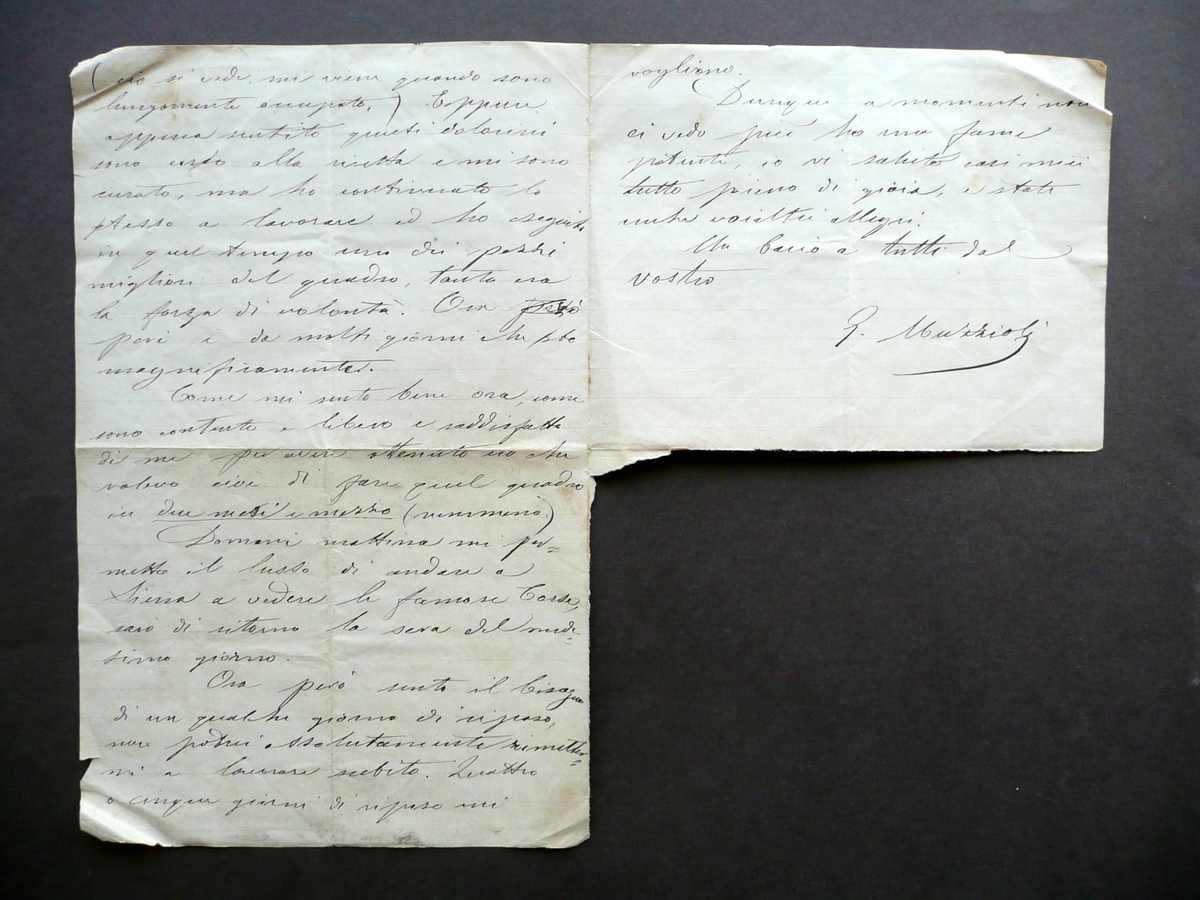 (ciò si vede mi viene quando sono
lungamente occupato,) Eppure
appena sentito questi dolorini
sono corso alla ricetta e mi sono
curato, ma ho continuato lo
stesso a lavorare ed ho eseguito
in quel tempo uno dei pezzi
migliori del quadro, tanta era
la forza di volontà. Ora
però è da molti giorni che sto
magnificamente.
Come mi sento bene ora, come
sono contento e libero e soddisfatto
di me per avere ottenuto ciò che
volevo cioè di fare quel quadro
in due mesi e mezzo (nemmeno)
Domani mattina mi per=
metto il lusso di andare a
Siena a vedere le famose Corse,
sarò di ritorno la sera del mede=
simo giorno.
Ora però sento il bisogno
di un qualche giorno di riposo,
non potrei assolutamente rimetter=
mi a lavorare subito. Quattro
o cinque giorni di riposo mi
vogliono.
Dunque a momenti non
ci vedo più ho una fame
potente, io vi saluto cari miei
tutto pieno di gioia, e state
anche voialtri allegri.
Un bacio a tutti dal
vostro
G. Muzzioli